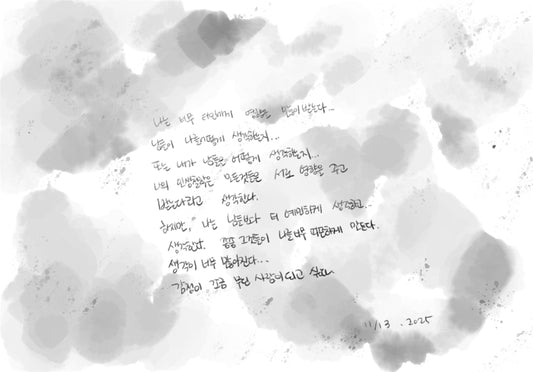 나는 너무 타인에게 영향을 많이 받는다...
남들이 나를 어떻게 생각하는지...
또는 내가 남들을 어떻게 생각하는지...
나의 인생철학은 모든것들은 서로 영향을 주고
받는다라고 생각한다.
하지만, 나는 남들보다 더 예민하게 생각하고..
생각한다. 종종 그것들이 나를 너무 피곤하게 만든다.
생각이 너무 많아진다...
감정이 조금 무딘 사람이 되고 싶다.
11/13 . 2025